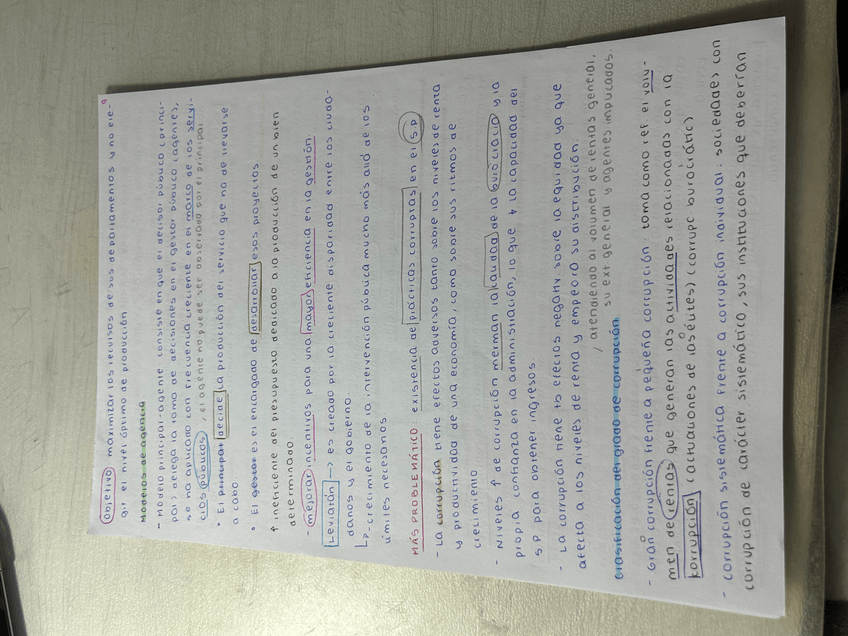 Objetivo maximizar los recursos de sus departamentos y no ele-
gir el nivel óptimo de producción
Modelos de agencia
- Modelo principal-agente consiste en que el decisor público (princi-
pal) delega la toma de decisiones en el gestor público (agente),
se ha aplicado con frecuencia creciente en el marco de los servi-
cios públicos / el agente no puede ser observado por el principal
• El principal decide la producción del servicio que ha de llevarse
a cabo
• El gestor es el encargado de desarrollar esos proyectos
↑ ineficiente del presupuesto dedicado a la producción de un bien
determinado
- mejorar incentivos para una mayor eficiencia en la gestión.
Leviatán → es creado por la creciente disparidad entre los ciuda-
danos y el gobierno
↳ crecimiento de la intervención pública mucho más allá de los
límites necesarios
MÁS PROBLEMÁTICO existencia de prácticas corruptas en el SP
- La corrupción tiene efectos adversos tanto sobre los niveles de renta
y productividad de una economía, como sobre sus ritmos de
crecimiento
- Niveles ↑ de corrupción merman la calidad de la burocracia y la
propia confianza en la administración, lo que ↓ la capacidad del
SP para obtener ingresos
- La corrupción tiene tb efectos negatv sobre la equidad ya que
afecta a los niveles de renta y empeora su distribución.
/ atendiendo al volumen de rentas general,
su ext general y agentes implicados.
Clasificación del grado de corrupción
- Gran corrupción frente a pequeña corrupción: toma como ref el volu-
men de rentas que generan las actividades relacionadas con la
korrupción (actuaciones de las élites) (corrupc burocrátic)
- Corrupción sistemática frente a corrupción individual: sociedades con
corrupción de carácter sistemático, sus instituciones que deberían